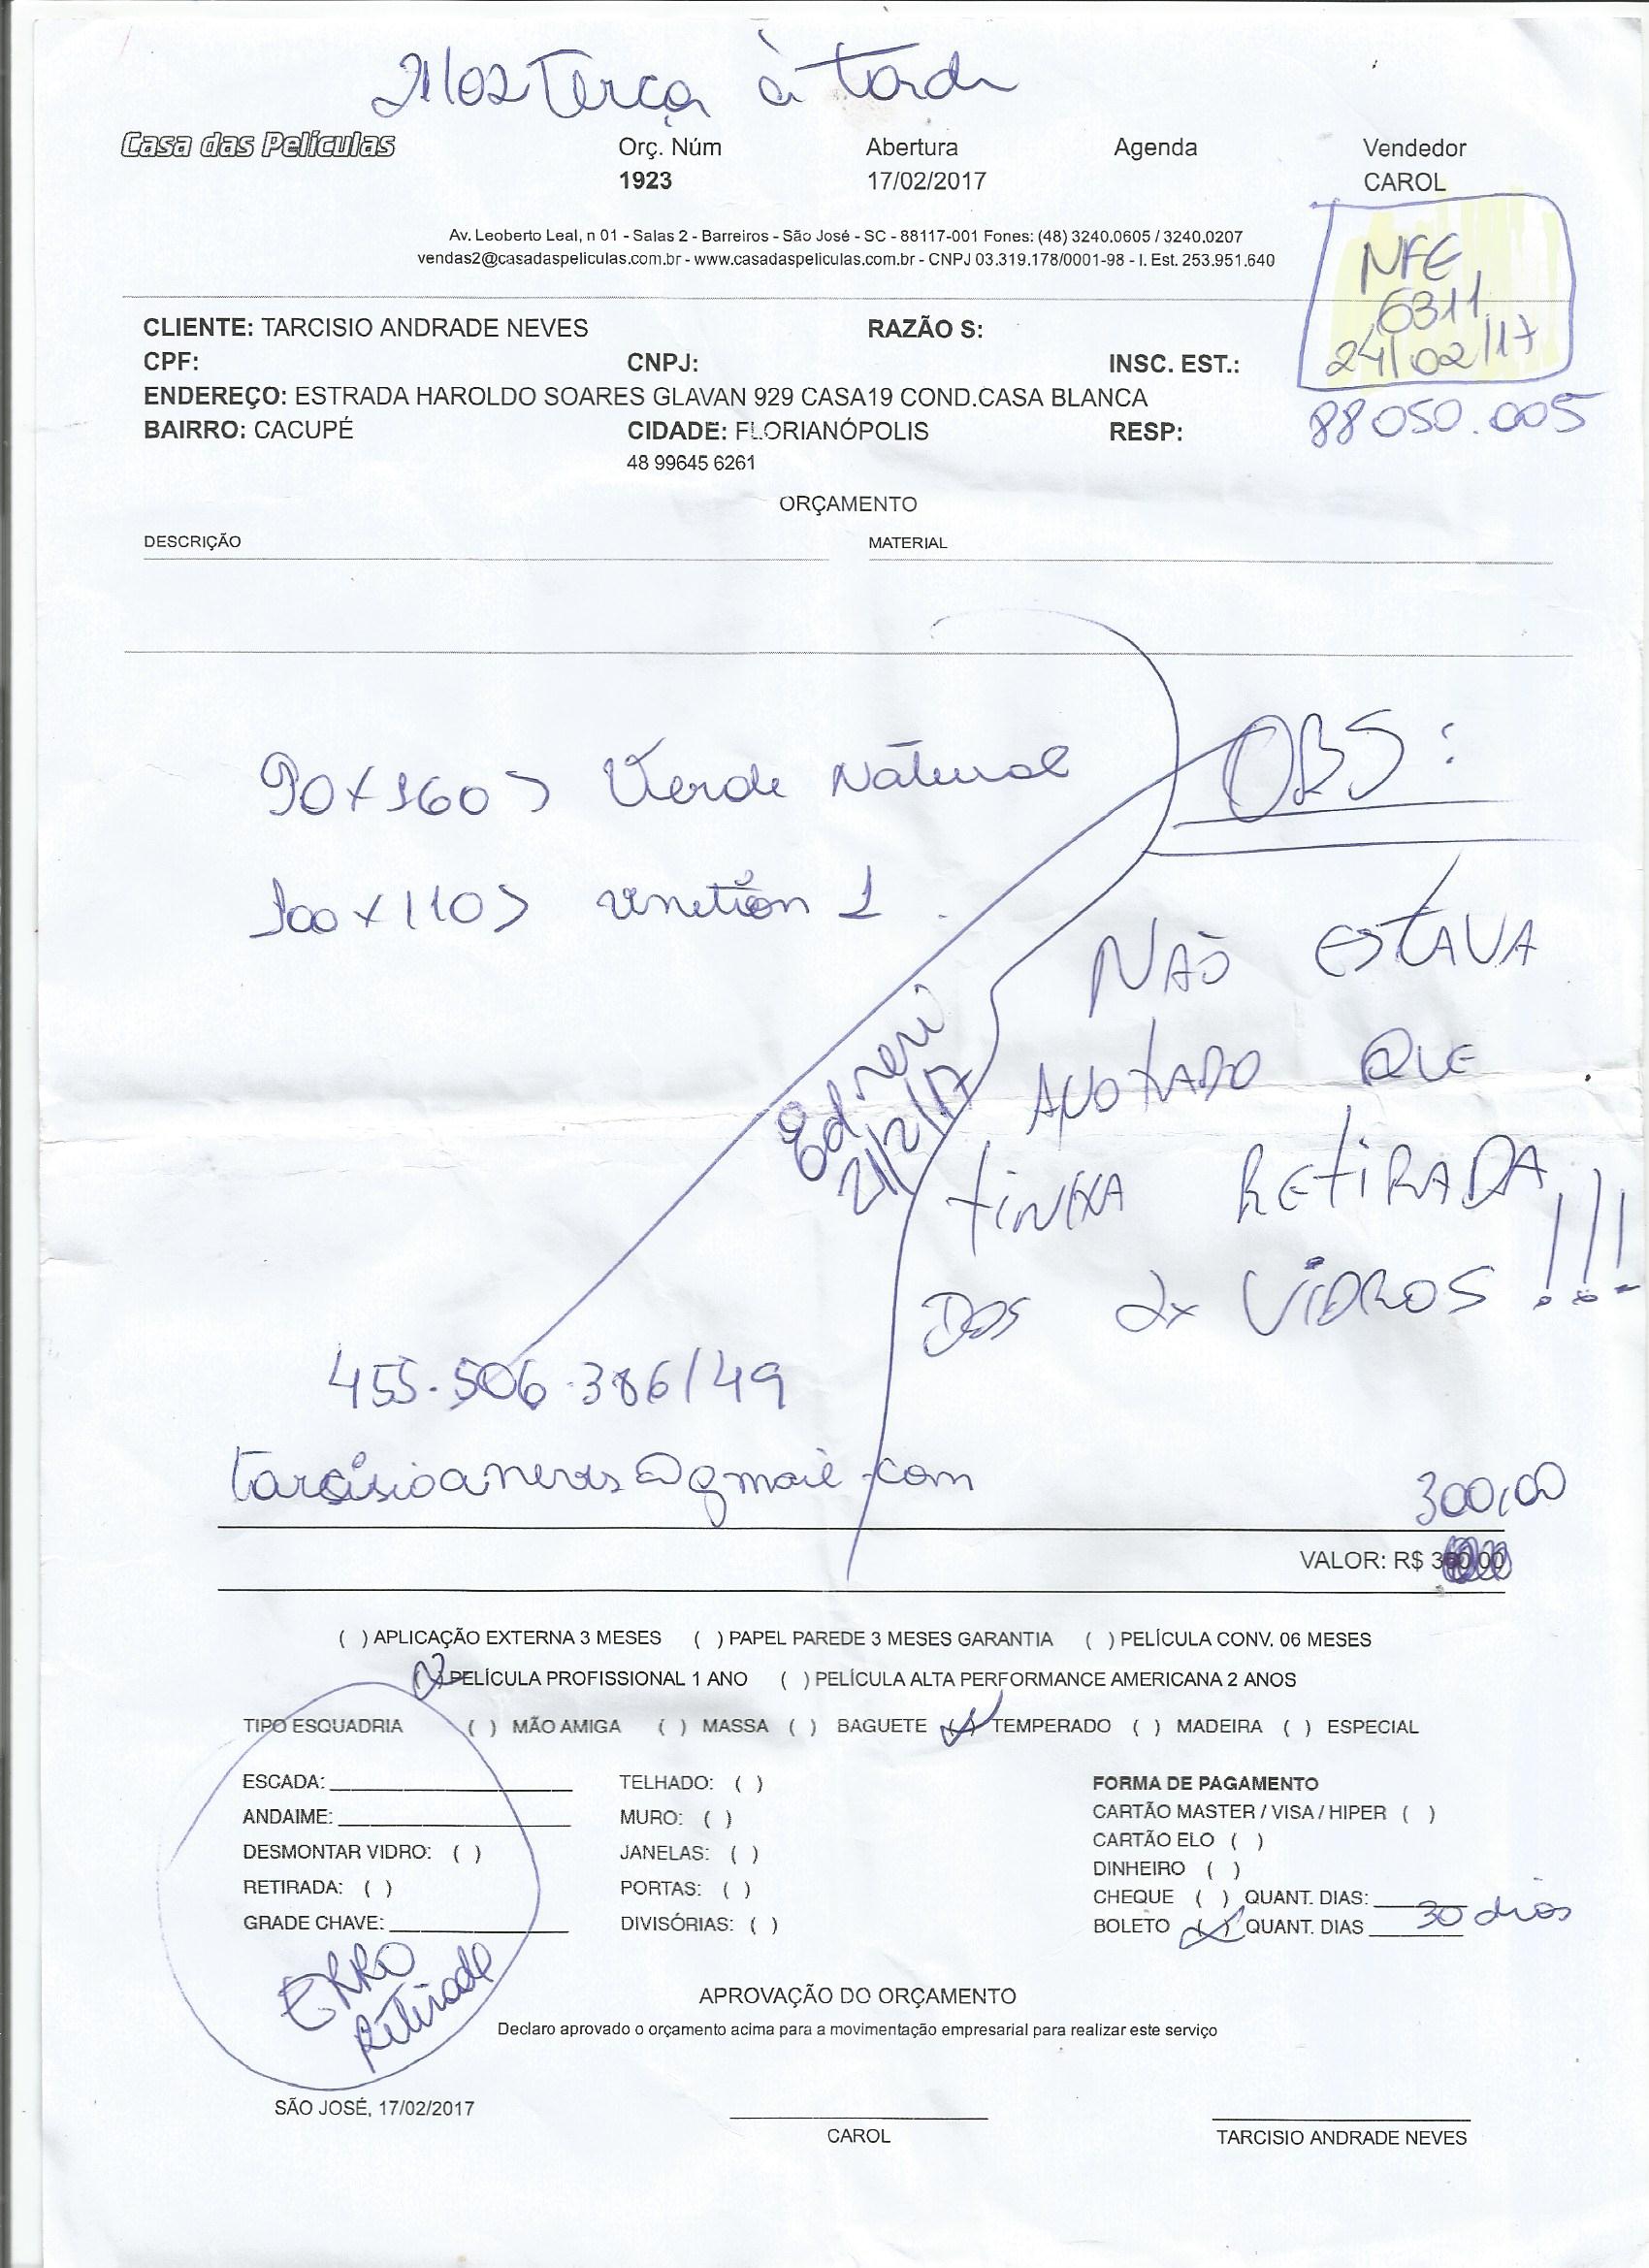 21/02 Terça à tarde
Casa das Películas Orç. Núm Abertura Agenda Vendedor
1923 17/02/2017 CAROL
Av. Leoberto Leal, n 01 - Salas 2 - Barreiros - São José - SC - 88117-001 Fones: (48) 3240.0605 / 3240.0207
vendas2@casadaspeliculas.com.br - www.casadaspeliculas.com.br - CNPJ 03.319.178/0001-98 - I. Est. 253.951.640
NFE
6311
24/02/17
CLIENTE: TARCISIO ANDRADE NEVES RAZÃO S:
CPF: CNPJ: INSC. EST.:
ENDEREÇO: ESTRADA HAROLDO SOARES GLAVAN 929 CASA19 COND.CASA BLANCA
88050.005
BAIRRO: CACUPÉ CIDADE: FLORIANÓPOLIS RESP:
48 99645 6261
ORÇAMENTO
DESCRIÇÃO MATERIAL
OBS:
90x160 > Verde Natural
100x110 > venetian 1
NÃO ESTAVA
ANOTADO QUE
TINHA RETIRADA
DOS 2x VIDROS !!!
21/2/17
455.506.386/49
tarcisioaneves@gmail.com
300,00
VALOR: R$
( ) APLICAÇÃO EXTERNA 3 MESES ( ) PAPEL PAREDE 3 MESES GARANTIA ( ) PELÍCULA CONV. 06 MESES
(X) PELÍCULA PROFISSIONAL 1 ANO ( ) PELÍCULA ALTA PERFORMANCE AMERICANA 2 ANOS
TIPO ESQUADRIA ( ) MÃO AMIGA ( ) MASSA ( ) BAGUETE (X) TEMPERADO ( ) MADEIRA ( ) ESPECIAL
ESCADA: TELHADO: ( ) FORMA DE PAGAMENTO
ANDAIME: MURO: ( ) CARTÃO MASTER / VISA / HIPER ( )
DESMONTAR VIDRO: ( ) JANELAS: ( ) CARTÃO ELO ( )
RETIRADA: ( ) PORTAS: ( ) DINHEIRO ( )
GRADE CHAVE: DIVISÓRIAS: ( ) CHEQUE ( ) QUANT. DIAS:
BOLETO (X) QUANT. DIAS 30 dias
ERRO
Retirada
APROVAÇÃO DO ORÇAMENTO
Declaro aprovado o orçamento acima para a movimentação empresarial para realizar este serviço
SÃO JOSÉ, 17/02/2017
CAROL TARCISIO ANDRADE NEVES